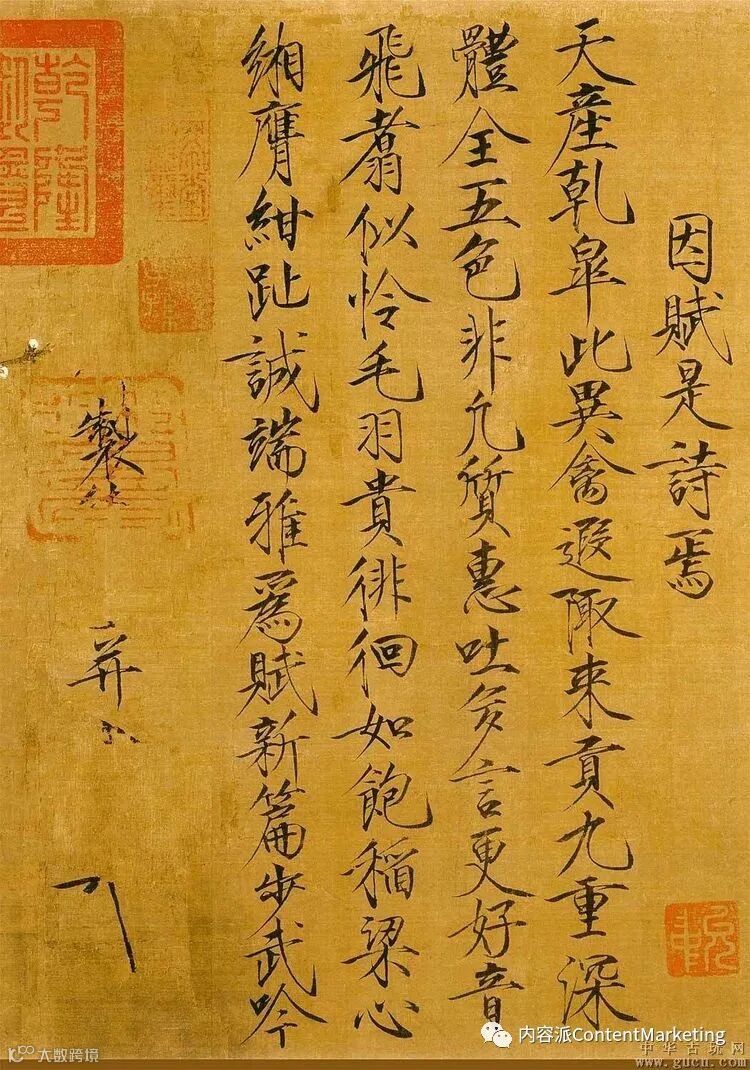 因賦是詩焉
天產乾皋此異禽遐陬來貢九重深
體全五色非凡質惠吐多言更好音
飛翥似憐毛羽貴徘徊如飽稻粱心
緗膺紺趾誠端雅為賦新篇步武吟
製
乾隆
內容派ContentMarketing
大数跨境
中华古玩网
www.gucn.com